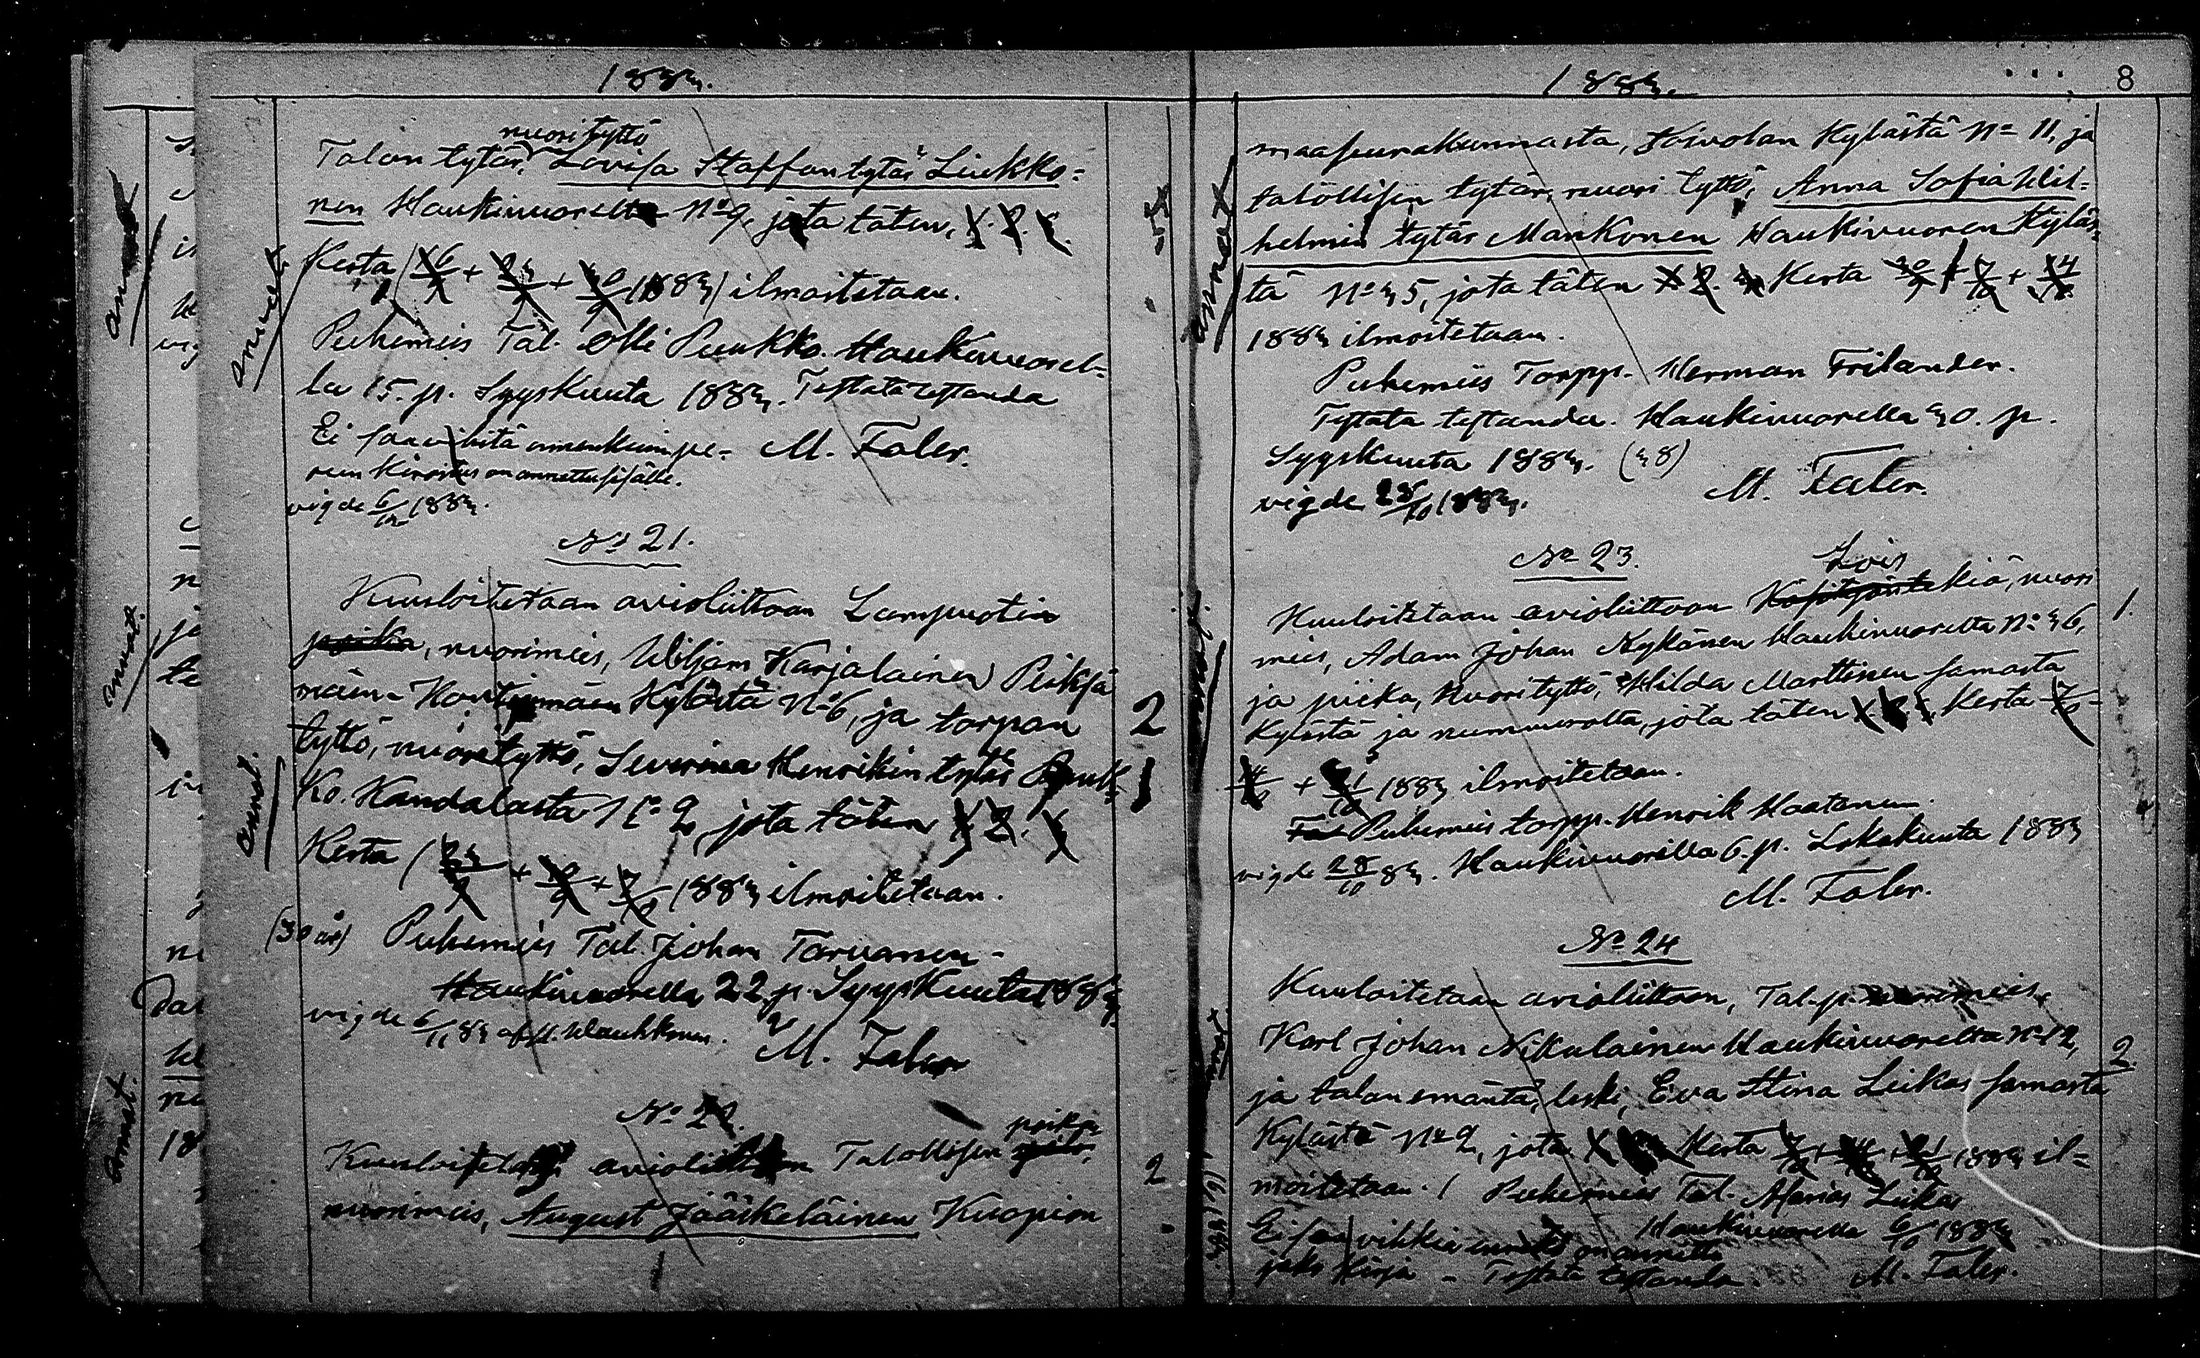 1883.
nuori tyttö
Talan tytär, Lovisa Staffantytär Liukko-
nen Haukivuorelta No 9, jota täten, 1. 2. 3.
Kerta (16/9 + 23/9 + 30/9 1883) ilmoitetaan.
Puhemies Tal. Olli Puukko. Haukivuorel-
la 15. p. Syyskuuta 1883. Testata testanda
Ei saa vihitä ennenkuin pe- M. Faler.
run kirjoitus on annettu sisälle.
vigde 6/12 1883.
No 21.
Kuuloitetaan avioliittoon Lampuotin
poika, nuorimies, Wiljam Karjalainen Pieksä
mäen- Kylästä No 6, ja torpan
tyttö, nuorityttö, Severina Henrikin tytär Puuk-
ko. Kandalasta No 2, jota täten 1. 2. 3.
Kerta (23/9 + 30/9 + 7/10 1883 ilmoitetaan.
(30 år) Puhemies Tal. Johan Tarvanen-
Haukivuorella 22 p. Syyskuuta 1883.
vigde 6/11 83 af H. Hauhkonen.
M. Faler
No 22.
poika
Kuuloitetaan avioliittoon Talollisen
nuorimies, August Jääskeläinen Kuopion
2
1
2
annet.
1883.
8
maaseurakunnasta, Toivolan Kylästä No 11, ja
talollisen tytär, nuori tyttö, Anna Sofia Wil-
helmin tytär Mankonen Haukivuoren Kyläs-
tä No 35, jota täten 1. 2. 3. Kerta 30/9 + 7/10 + 14/10
1883 ilmoitetaan.
Puhemies Torpp. Herman Frilander.
Testata testanda. Haukivuorella 30. p.
Syyskuuta 1883. (38)
M. Faler.
vigde 28/10 1883.
No 23.
Lois
Kuuloitetaan avioliittoon kiä, nuori
mies, Adam Johan Nykänen Haukivuorelta No 36,
ja piika, Nuorityttö, Hilda Marttinen samasta
Kylästä ja nummerolta, jota täten 1 2 3 Kerta 7/10 -
14/10 + 21/10 1883 ilmoitetaan.
Puhemies torpp. Henrik Haatanen.
vigde 28/10 83. Haukivuorella 6. p. Lokakuuta 1883
M. Faler.
No 24
Kuuloitetaan avioliittoon, Tal. p. nuorimies,
Karl Johan Nikulainen Haukivuorelta No 12,
ja talon emäntä, leski, Eva Stina Liikas samasta
Kylästä No 2, jota 1 2 3 Kerta 7/10 + 14/10 + 21/10 1883 il-
moitetaan. Puhemies Tal. Liikas
Haukivuorella 6/10 1883
Ei saa vihkiä on annettu
jako kirja - Testata testanda. M. Faler.
1.
2.